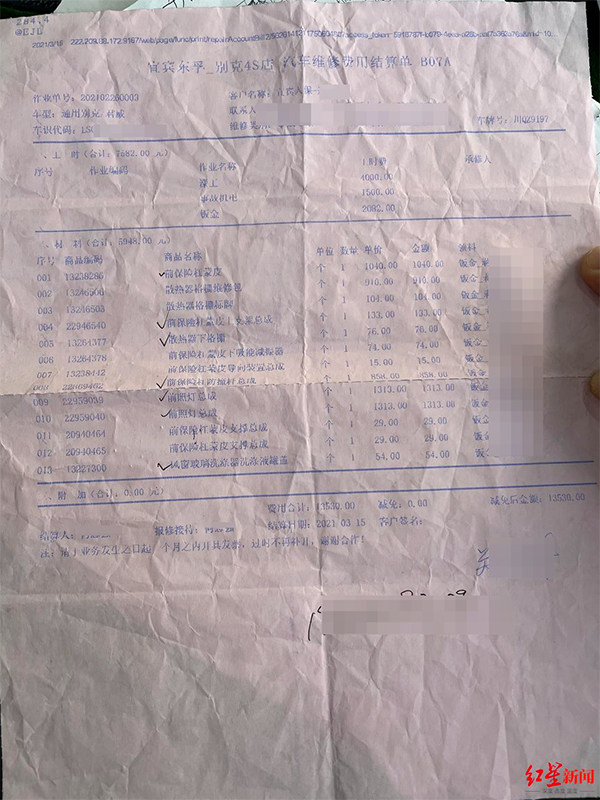 2021/3/15
宜宾东孚_别克4S店 汽车维修费用结算单 B07A
作业单号: 202102260003 客户名称:
车型: 通用别克/君威 联系人
车识代码: LSG 车牌号: 川QZ9197
工 时(合计: 7582.00 元)
序号 作业编码 作业名称 工时费 承修人
漆工 4000.00
事故机电 1500.00
钣金 2082.00
材 料(合计: 5948.00 元)
序号 商品编码 商品名称 单位 数量 单价 金额 领料
001 13238286 前保险杠蒙皮 个 1 1040.00 1040.00 钣金
002 13246506 散热器格栅维修包 个 1 910.00 910.00 钣金
003 13246503 散热器格栅标牌 个 1 104.00 104.00 钣金
004 22946540 前保险杠蒙皮上支架总成 个 1 133.00 133.00 钣金
005 13264377 散热器下格栅 个 1 76.00 76.00 钣金
006 13264378 前保险杠蒙皮下吸能减振器 个 1 74.00 74.00 钣金
007 13238442 前保险杠蒙皮导向装置总成 个 1 15.00 15.00 钣金
008 22969462 个 1 858.00 858.00 钣金
009 22959039 前照灯总成 个 1 1313.00 1313.00 钣金
010 22959040 前照灯总成 个 1 1313.00 1313.00 钣金
011 20940464 前保险杠蒙皮支撑总成 个 1 29.00 29.00 钣金
012 20940465 前保险杠蒙皮支撑总成 个 1 29.00 29.00 钣金
013 13227300 风窗玻璃洗涤器洗涤液罐盖 个 1 54.00 54.00 钣金
附 加(合计: 0.00 元)
费用合计: 13530.00 减免: 0.00 减免后金额: 13530.00
结算人: 报修接待: 结算日期: 2021 03 15 客户签名:
注: 请于业务发生之日起一个月之内开具发票,过时不再补开,谢谢合作!
红星新闻